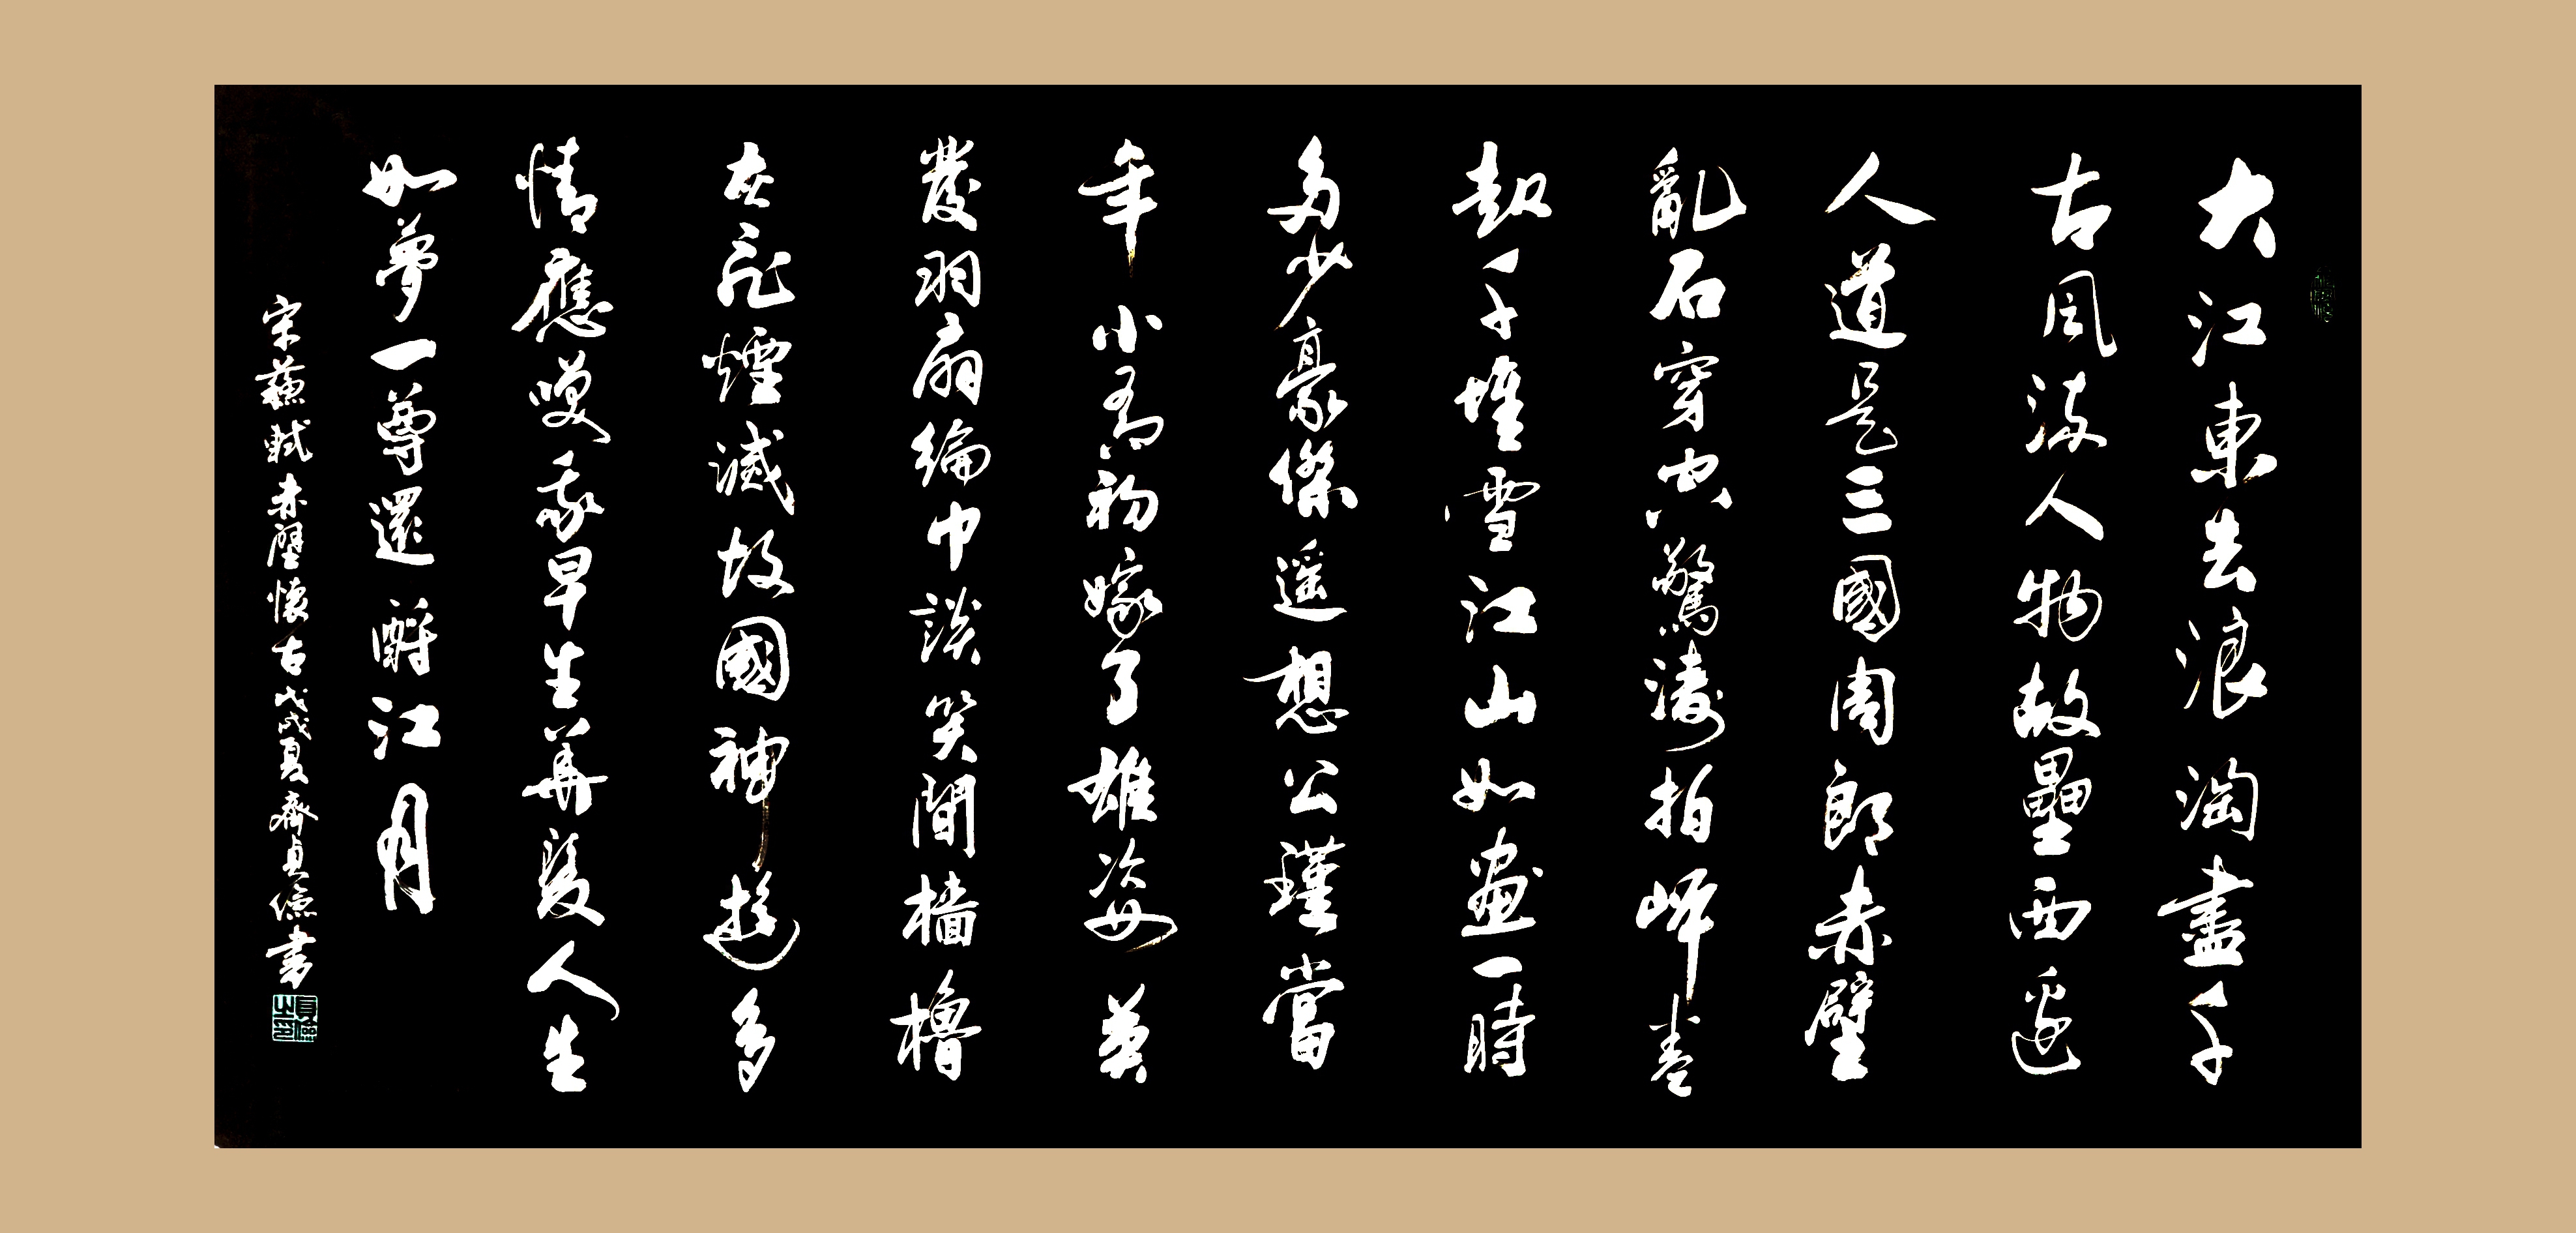 大江東去浪淘盡千
古風流人物故壘西邊
人道是三國周郎赤壁
亂石穿空驚濤拍岸卷
起千堆雪江山如畫一時
多少豪傑遥想公瑾當
年小喬初嫁了雄姿英
發羽扇綸巾談笑間檣櫓
灰飛煙滅故國神遊多
情應嘆我早生華髮人生
如夢一尊還酹江月
宋蘇軾赤壁懷古戊戌夏齊貞儉書